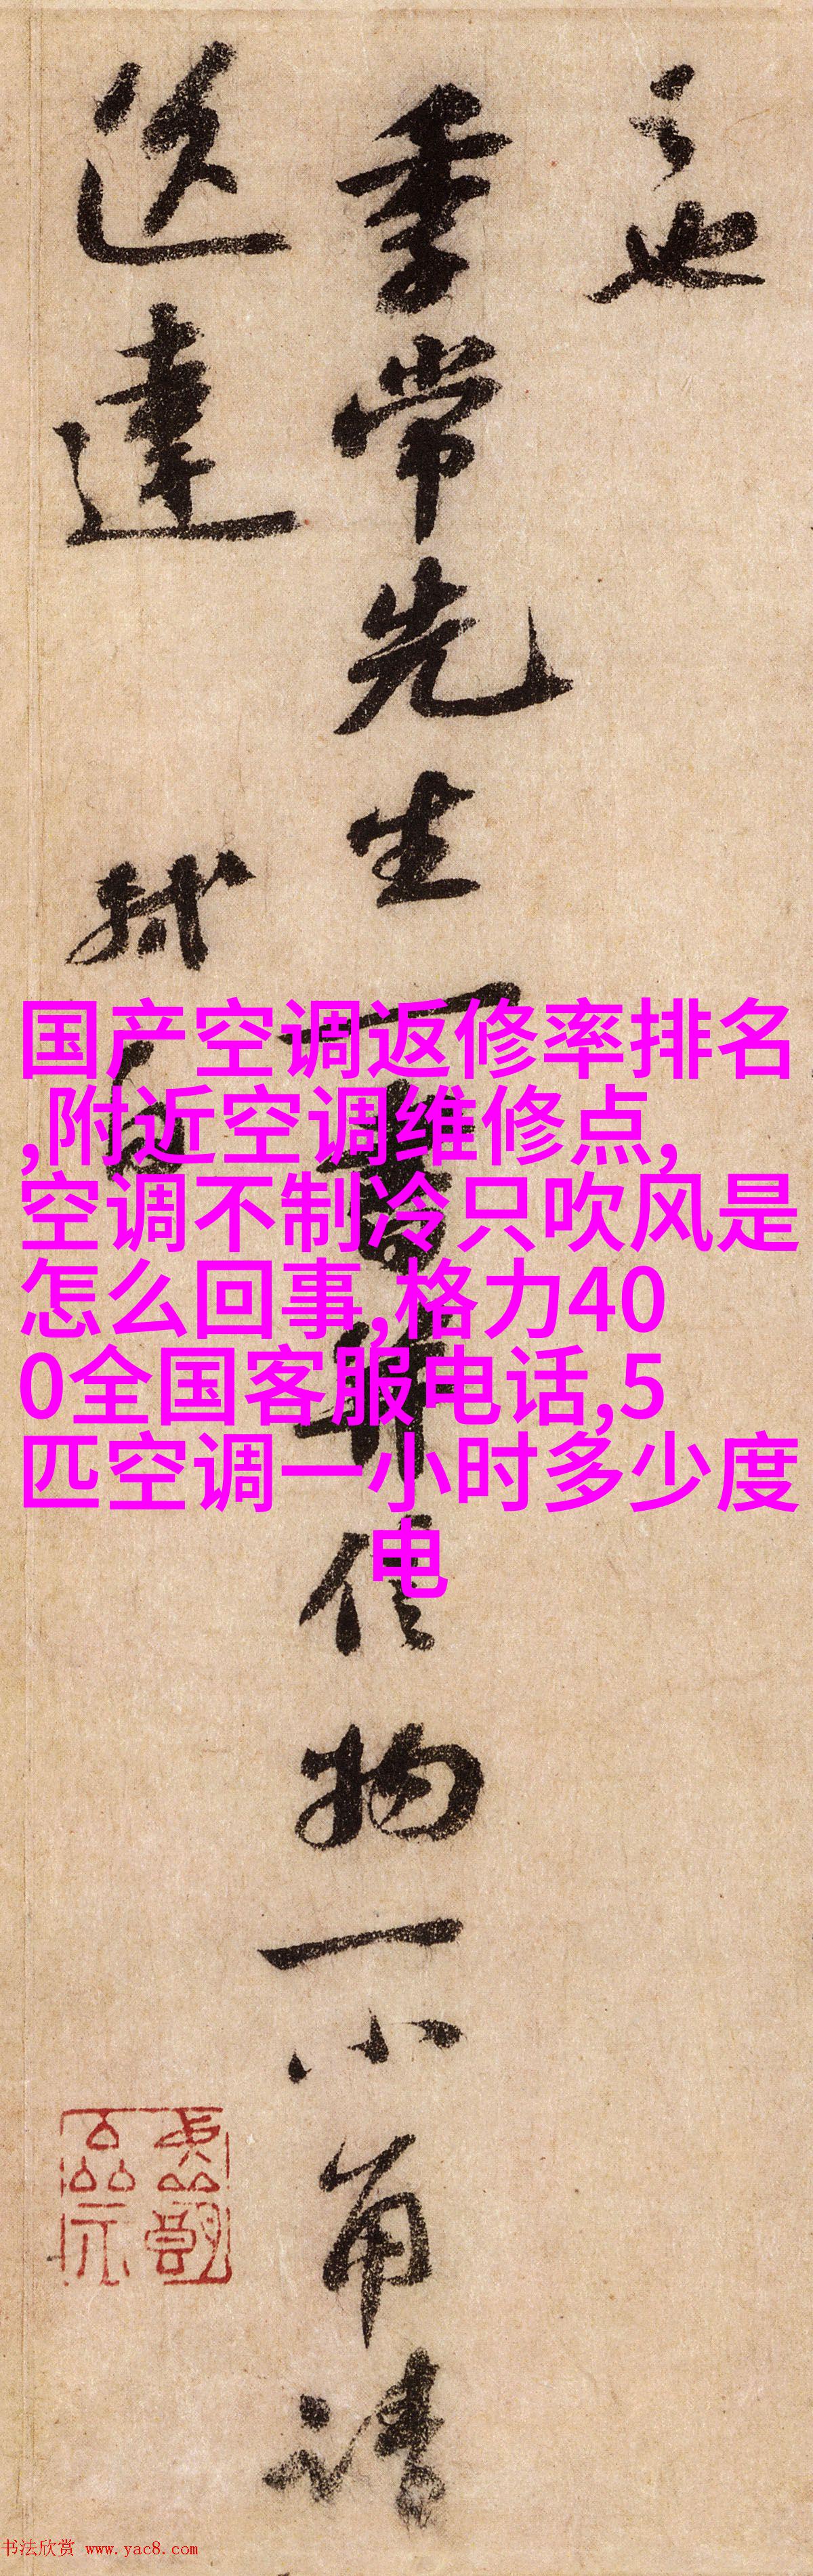 之也
季常先生一書并信物一小角請
送達 軾白
国产空调返修率排名
,附近空调维修点,
空调不制冷只吹风是
怎么回事,格力40
0全国客服电话,5
匹空调一小时多少度
电
书法欣赏 www.yac8.com